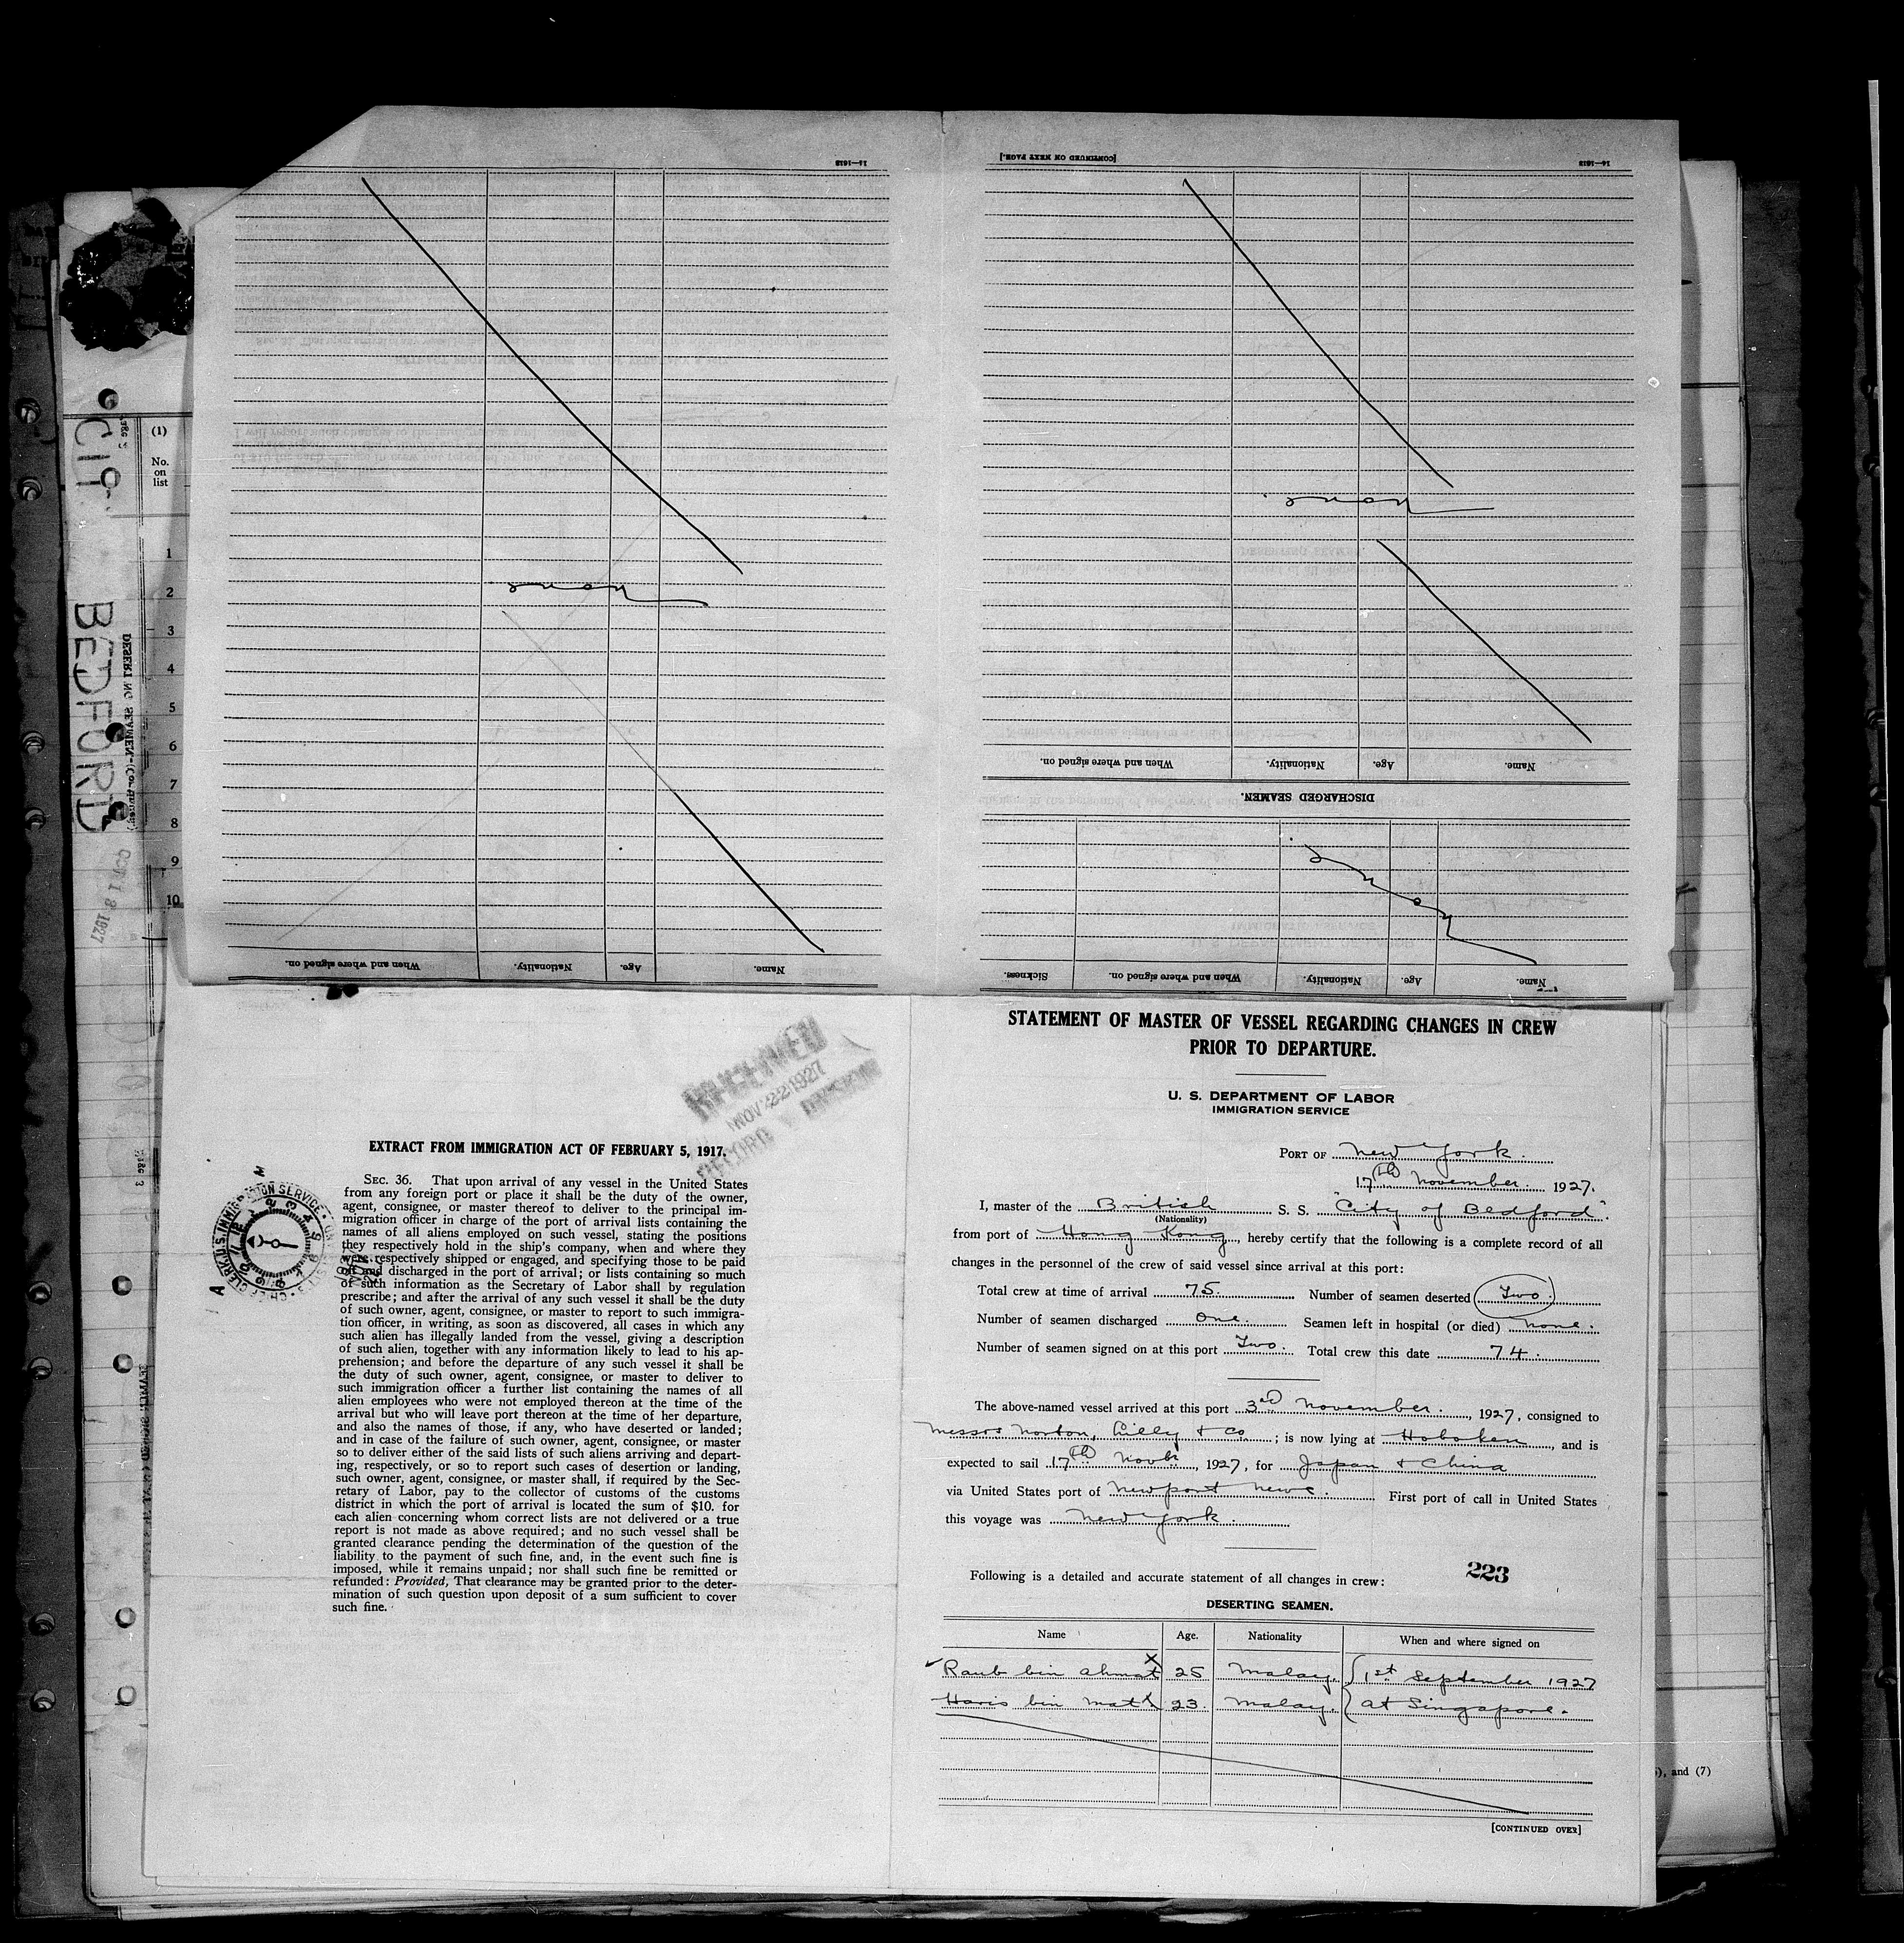 [CONTINUED ON NEXT PAGE.]
14—1618
Name.
Age.
Nationality.
When and where signed on.
none.
Name.
Age.
Nationality.
When and where signed on.
Sickness.
none.
DISCHARGED SEAMEN.
Name.
Age.
Nationality.
When and where signed on.
none.
CITY
BEDFORD
DESERTING SEAMEN
(1)
No.
on
list
1
2
3
4
5
6
7
8
9
10
RECEIVED
NOV 22 1927
RECORD DIVISION
EXTRACT FROM IMMIGRATION ACT OF FEBRUARY 5, 1917.
SEC. 36. That upon arrival of any vessel in the United States
from any foreign port or place it shall be the duty of the owner,
agent, consignee, or master thereof to deliver to the principal im-
migration officer in charge of the port of arrival lists containing the
names of all aliens employed on such vessel, stating the positions
they respectively hold in the ship's company, when and where they
were respectively shipped or engaged, and specifying those to be paid
off and discharged in the port of arrival; or lists containing so much
of such information as the Secretary of Labor shall by regulation
prescribe; and after the arrival of any such vessel it shall be the duty
of such owner, agent, consignee, or master to report to such immigra-
tion officer, in writing, as soon as discovered, all cases in which any
such alien has illegally landed from the vessel, giving a description
of such alien, together with any information likely to lead to his ap-
prehension; and before the departure of any such vessel it shall be
the duty of such owner, agent, consignee, or master to deliver to
such immigration officer a further list containing the names of all
alien employees who were not employed thereon at the time of the
arrival but who will leave port thereon at the time of her departure,
and also the names of those, if any, who have deserted or landed;
and in case of the failure of such owner, agent, consignee, or master
so to deliver either of the said lists of such aliens arriving and depart-
ing, respectively, or so to report such cases of desertion or landing,
such owner, agent, consignee, or master shall, if required by the Sec-
retary of Labor, pay to the collector of customs of the customs
district in which the port of arrival is located the sum of $10. for
each alien concerning whom correct lists are not delivered or a true
report is not made as above required; and no such vessel shall be
granted clearance pending the determination of the question of the
liability to the payment of such fine, and, in the event such fine is
imposed, while it remains unpaid; nor shall such fine be remitted or
refunded: Provided, That clearance may be granted prior to the deter-
mination of such question upon deposit of a sum sufficient to cover
such fine.
STATEMENT OF MASTER OF VESSEL REGARDING CHANGES IN CREW
PRIOR TO DEPARTURE.
U. S. DEPARTMENT OF LABOR
IMMIGRATION SERVICE
PORT OF New York.
17th November. 1927.
I, master of the British S. S. "City of Bedford".
(Nationality)
from port of Hong Kong, hereby certify that the following is a complete record of all
changes in the personnel of the crew of said vessel since arrival at this port:
Total crew at time of arrival 75. Number of seamen deserted Two.
Number of seamen discharged One. Seamen left in hospital (or died) none.
Number of seamen signed on at this port Two. Total crew this date 74.
The above-named vessel arrived at this port 3rd November., 1927, consigned to
Messrs Norton, Lilly & Co; is now lying at Hoboken, and is
expected to sail 17th Novbr, 1927, for Japan & China
via United States port of Newport News. First port of call in United States
this voyage was New York.
Following is a detailed and accurate statement of all changes in crew:
223
DESERTING SEAMEN.
Name Age. Nationality When and where signed on
Raub bin Ahmat 25 Malay. 1st September 1927
Haris bin Matt 23. Malay. at Singapore.
[CONTINUED OVER]
, and (7)